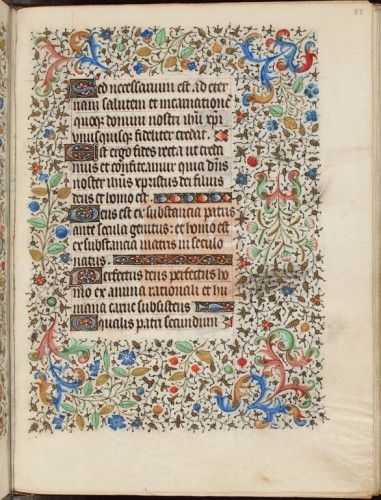 Sed necessarium est ad eter
nam salutem ut incarnationē
quoqȝ domini nostri ihū xp̄i
vnusquisqȝ fideliter credat.
Est ergo fides recta ut creda
mus et confiteamur quia dn̄s
noster ihūs xpristus dei filius
deus et homo est
Deus est ex substancia patris
ante secula genitus: et homo est
ex substancia matris in seculo
natus.
Perfectus deus perfectus ho
mo ex anima rationali et hu
mana carne subsistens
Equalis patri secundum